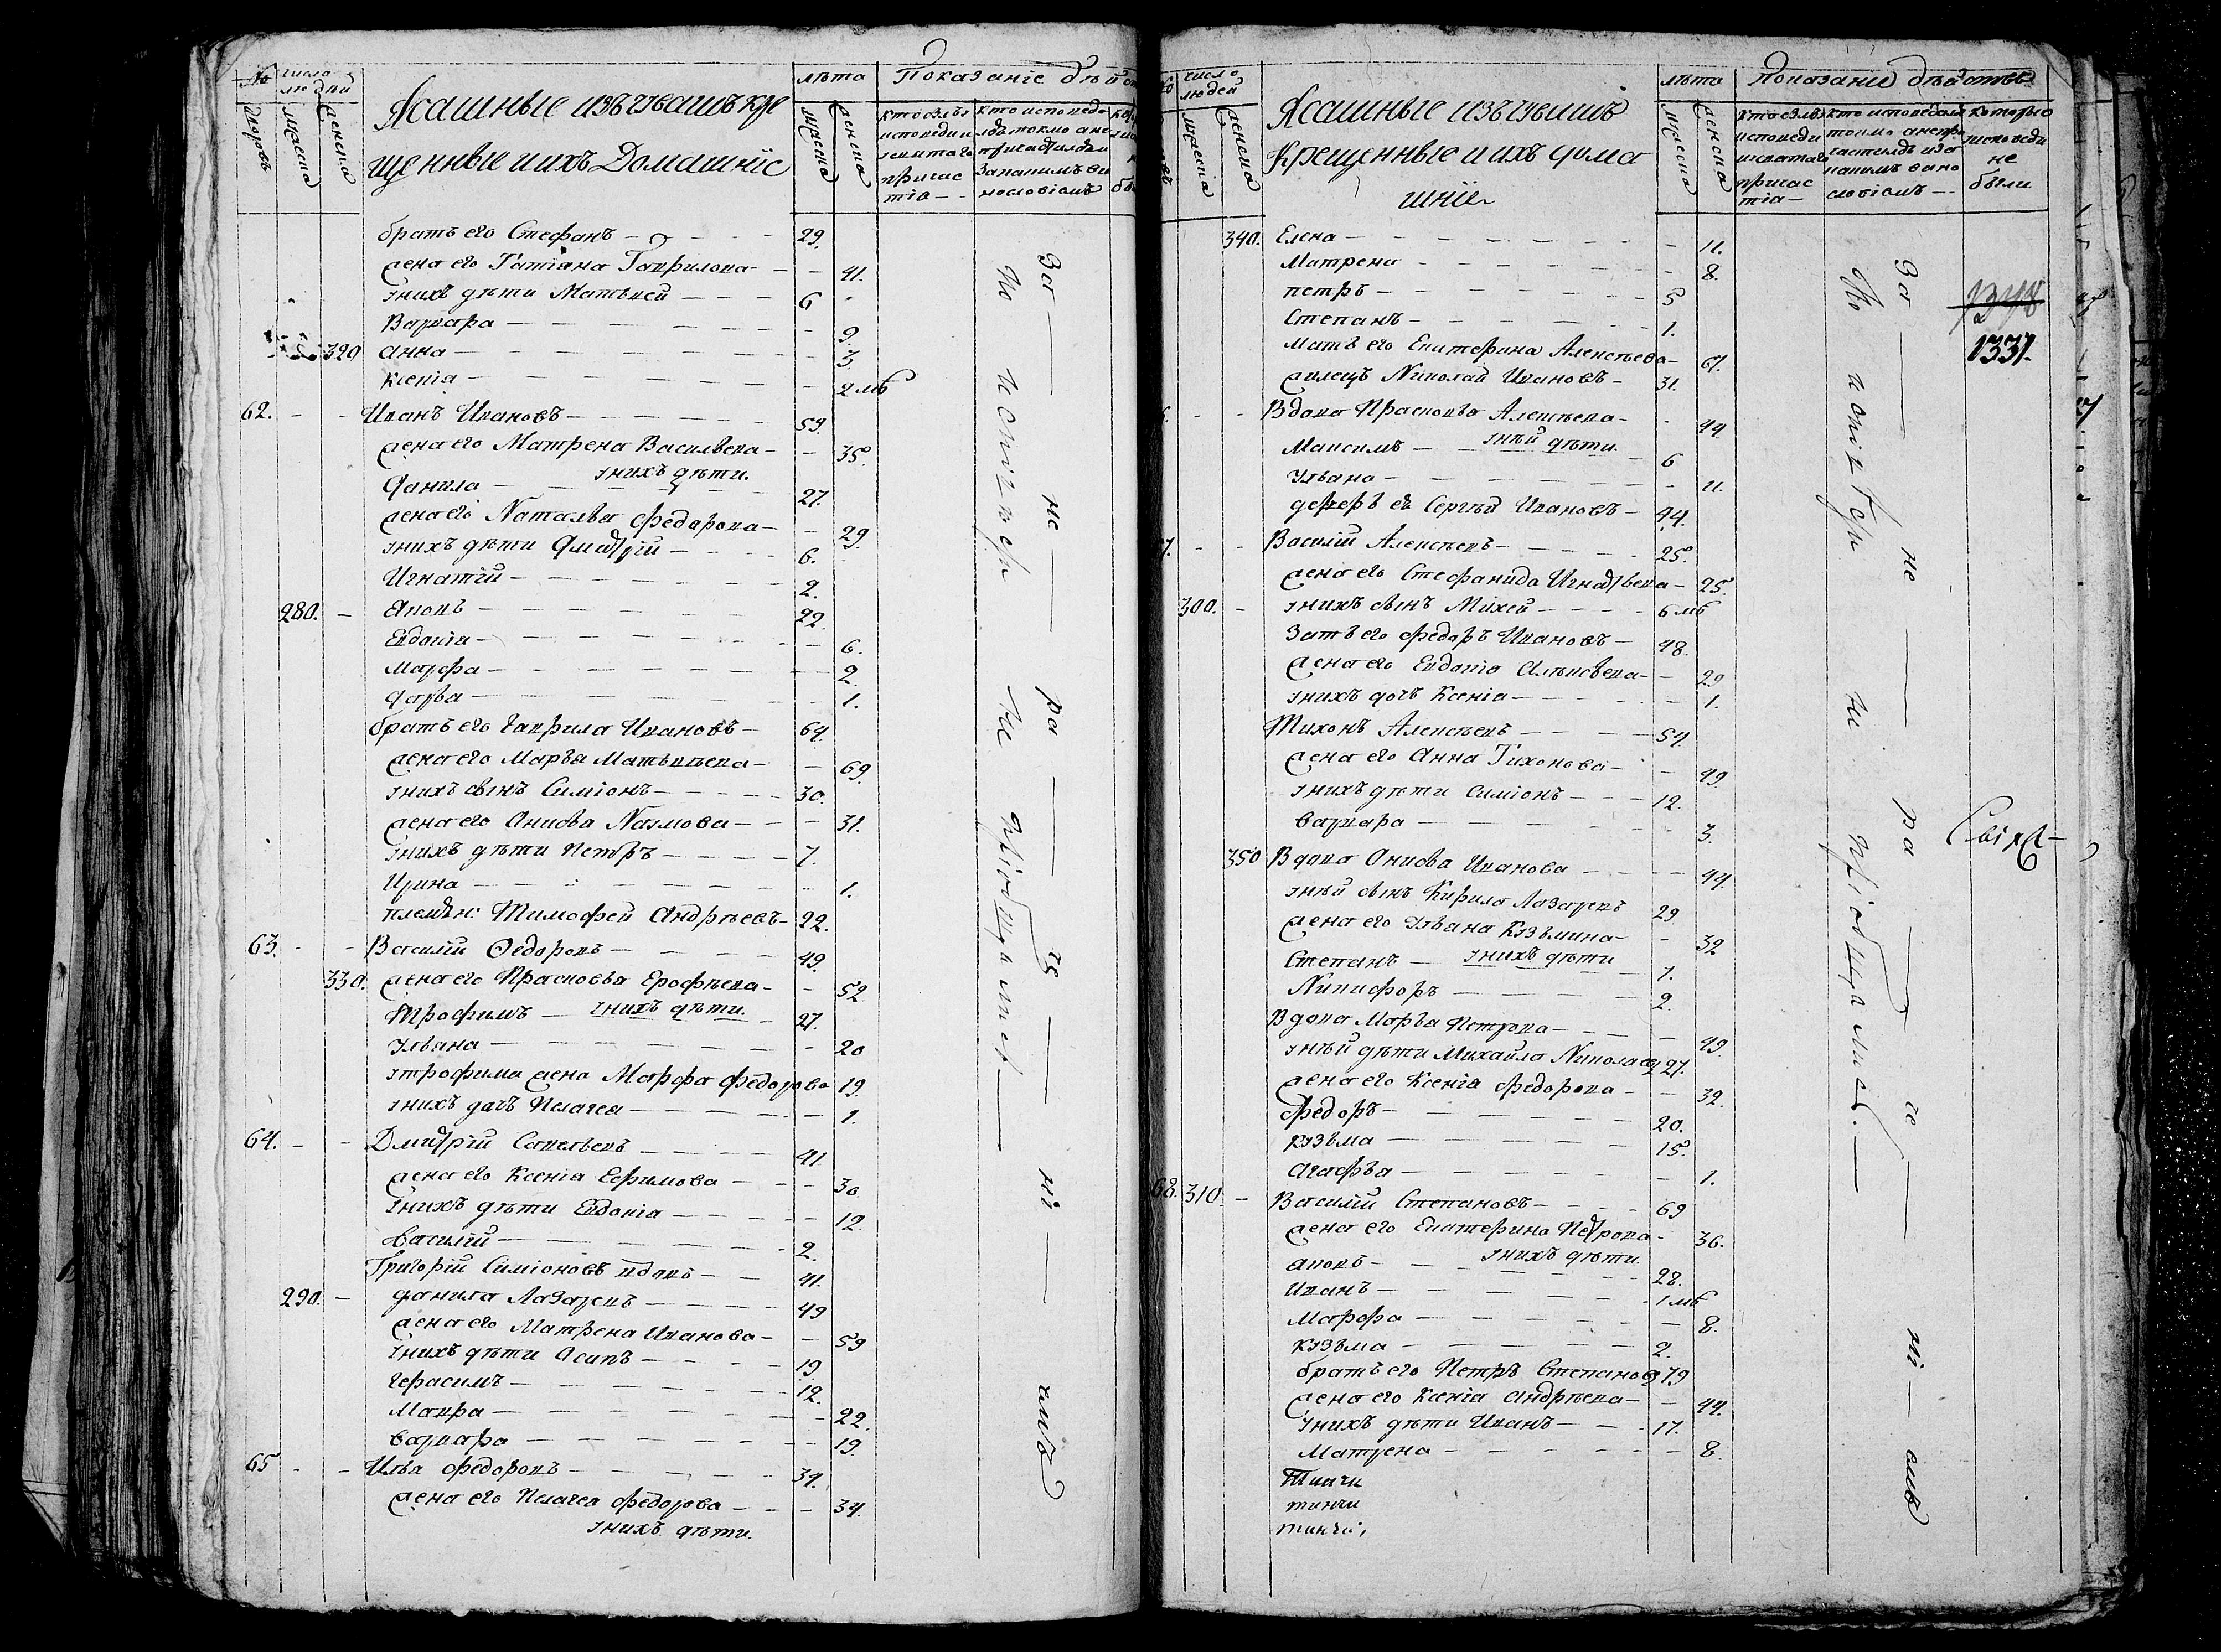 № число людей
дворовъ мужеска женска
Ясашные изъ чувашъ кре
щенные и ихъ Домашнїе
лѣта
мужеска женска
Показанїе дѣйст
кто былъ у исповеди и у святаго причастїа —
кто исповедо
былъ токмо а не причастился и за какимъ виностловїемъ
братъ его Стефанъ — 29.
жена его Татїана Гаврилова — 41.
у нихъ дѣти Матвей — 6
Варвара — 9.
320 анна — 3.
ксенїа — 2 мѣ
62. Иванъ Ивановъ — 59.
жена его Матрена Васильева — 35.
у нихъ дѣти.
Данила — 27.
жена его Наталья федорова — 29.
у нихъ дѣти Дмитрїи — 6.
Игнатїи — 2.
280. Яковъ — 22.
Евдокїа — 6.
Марфа — 2
дарья — 1.
братъ его Гаврила Ивановъ — 64.
жена его Марья Матвѣева — 69.
у нихъ сынъ Симїонъ — 30.
жена его Анисья Наумова — 31.
у нихъ дѣти Петръ — 7.
Ирина — 1.
племян: Тимофей Андрѣевъ — 22.
63. Василїи Ѳедоровъ — 49.
330. жена его Прасковья Ерофѣева — 52
Трофимъ — у нихъ дѣти. 27.
Ульяна — 20
у трофима жена Марфа Федорова 19.
у нихъ дочь Пелагея — 1.
64. Дмитрїй Савельевъ — 41.
жена его Ксенїа Ефимова — 30.
у нихъ дѣти Евдокїа — 12
Василїй — 2.
Григорїй Симїоновъ вдовъ — 41.
290. данила Лазаревъ — 49
жена его Матрена Иванова — 59
у нихъ дѣти Осипъ — 19.
Герасимъ — 12.
Мавра — 22.
варвара — 19.
65 Илья Федоровъ — 34.
жена его Пелагея Федорова — 34.
у нихъ дѣти.
За — не — ра — че — нї — емъ
Не исповеды не прїобщались —
число людей
мужеска женска
Ясашные изъ чувашъ
крещенные и ихъ дома
шнїе
лѣта
мужеска женска
показанїе дѣйства
кто былъ у исповеди и святаго причастїа —
кто исповедался токмо а не причастился и за какимъ виностловїемъ —
которые у исповеди не были
340. Елена — 11.
Матрена — 8.
петръ — 5
Степанъ — 1.
мать его Екатерина Алексѣева — 67.
Николай Ивановъ — 31.
Вдова Прасковья Алексѣева — 44.
Максимъ — у ней дѣти. 6
Ульяна — 11.
деверь еѣ Сергѣй Ивановъ — 44.
Василїи Алексѣевъ — 25.
жена его Стефанида Игнатьева — 25.
300. у нихъ сынъ Михей — 6 мѣ
Зять его Федоръ Ивановъ — 48.
жена его Евдокїа Алексѣева — 29
у нихъ дочь Ксенїа — 1.
Тихонъ Алексѣевъ — 54.
жена его Анна Тихонова — 49.
у нихъ дѣти Симїонъ — 12.
варвара — 3.
350 Вдова Анисья Иванова — 44.
у ней сынъ Кирило Лазаревъ 29
жена его Ульяна Кузьмина — 32
Степанъ — у нихъ дѣти 7.
Никифоръ — 2.
Вдова Марья Петрова — 49.
у ней дѣти Михайла Николаевъ 27.
жена его Ксенїа Федорова — 32.
Федоръ — 20.
кузьма — 15.
Агафья — 1.
68. 310. Василїй Степановъ — 69
жена его Екатерина Петрова — 36.
Яковъ — у нихъ дѣти 28.
Иванъ — 1 мѣ
Марфа — 8.
кузьма — 2.
братъ его Петръ Степановъ 79
жена его Ксенїа Андрѣева — 44.
у нихъ дѣти Иванъ — 17.
Матрена — 8.
За — не — ра — че — нї — емъ
Не исповеды не прїобщались. —
1348
1337.